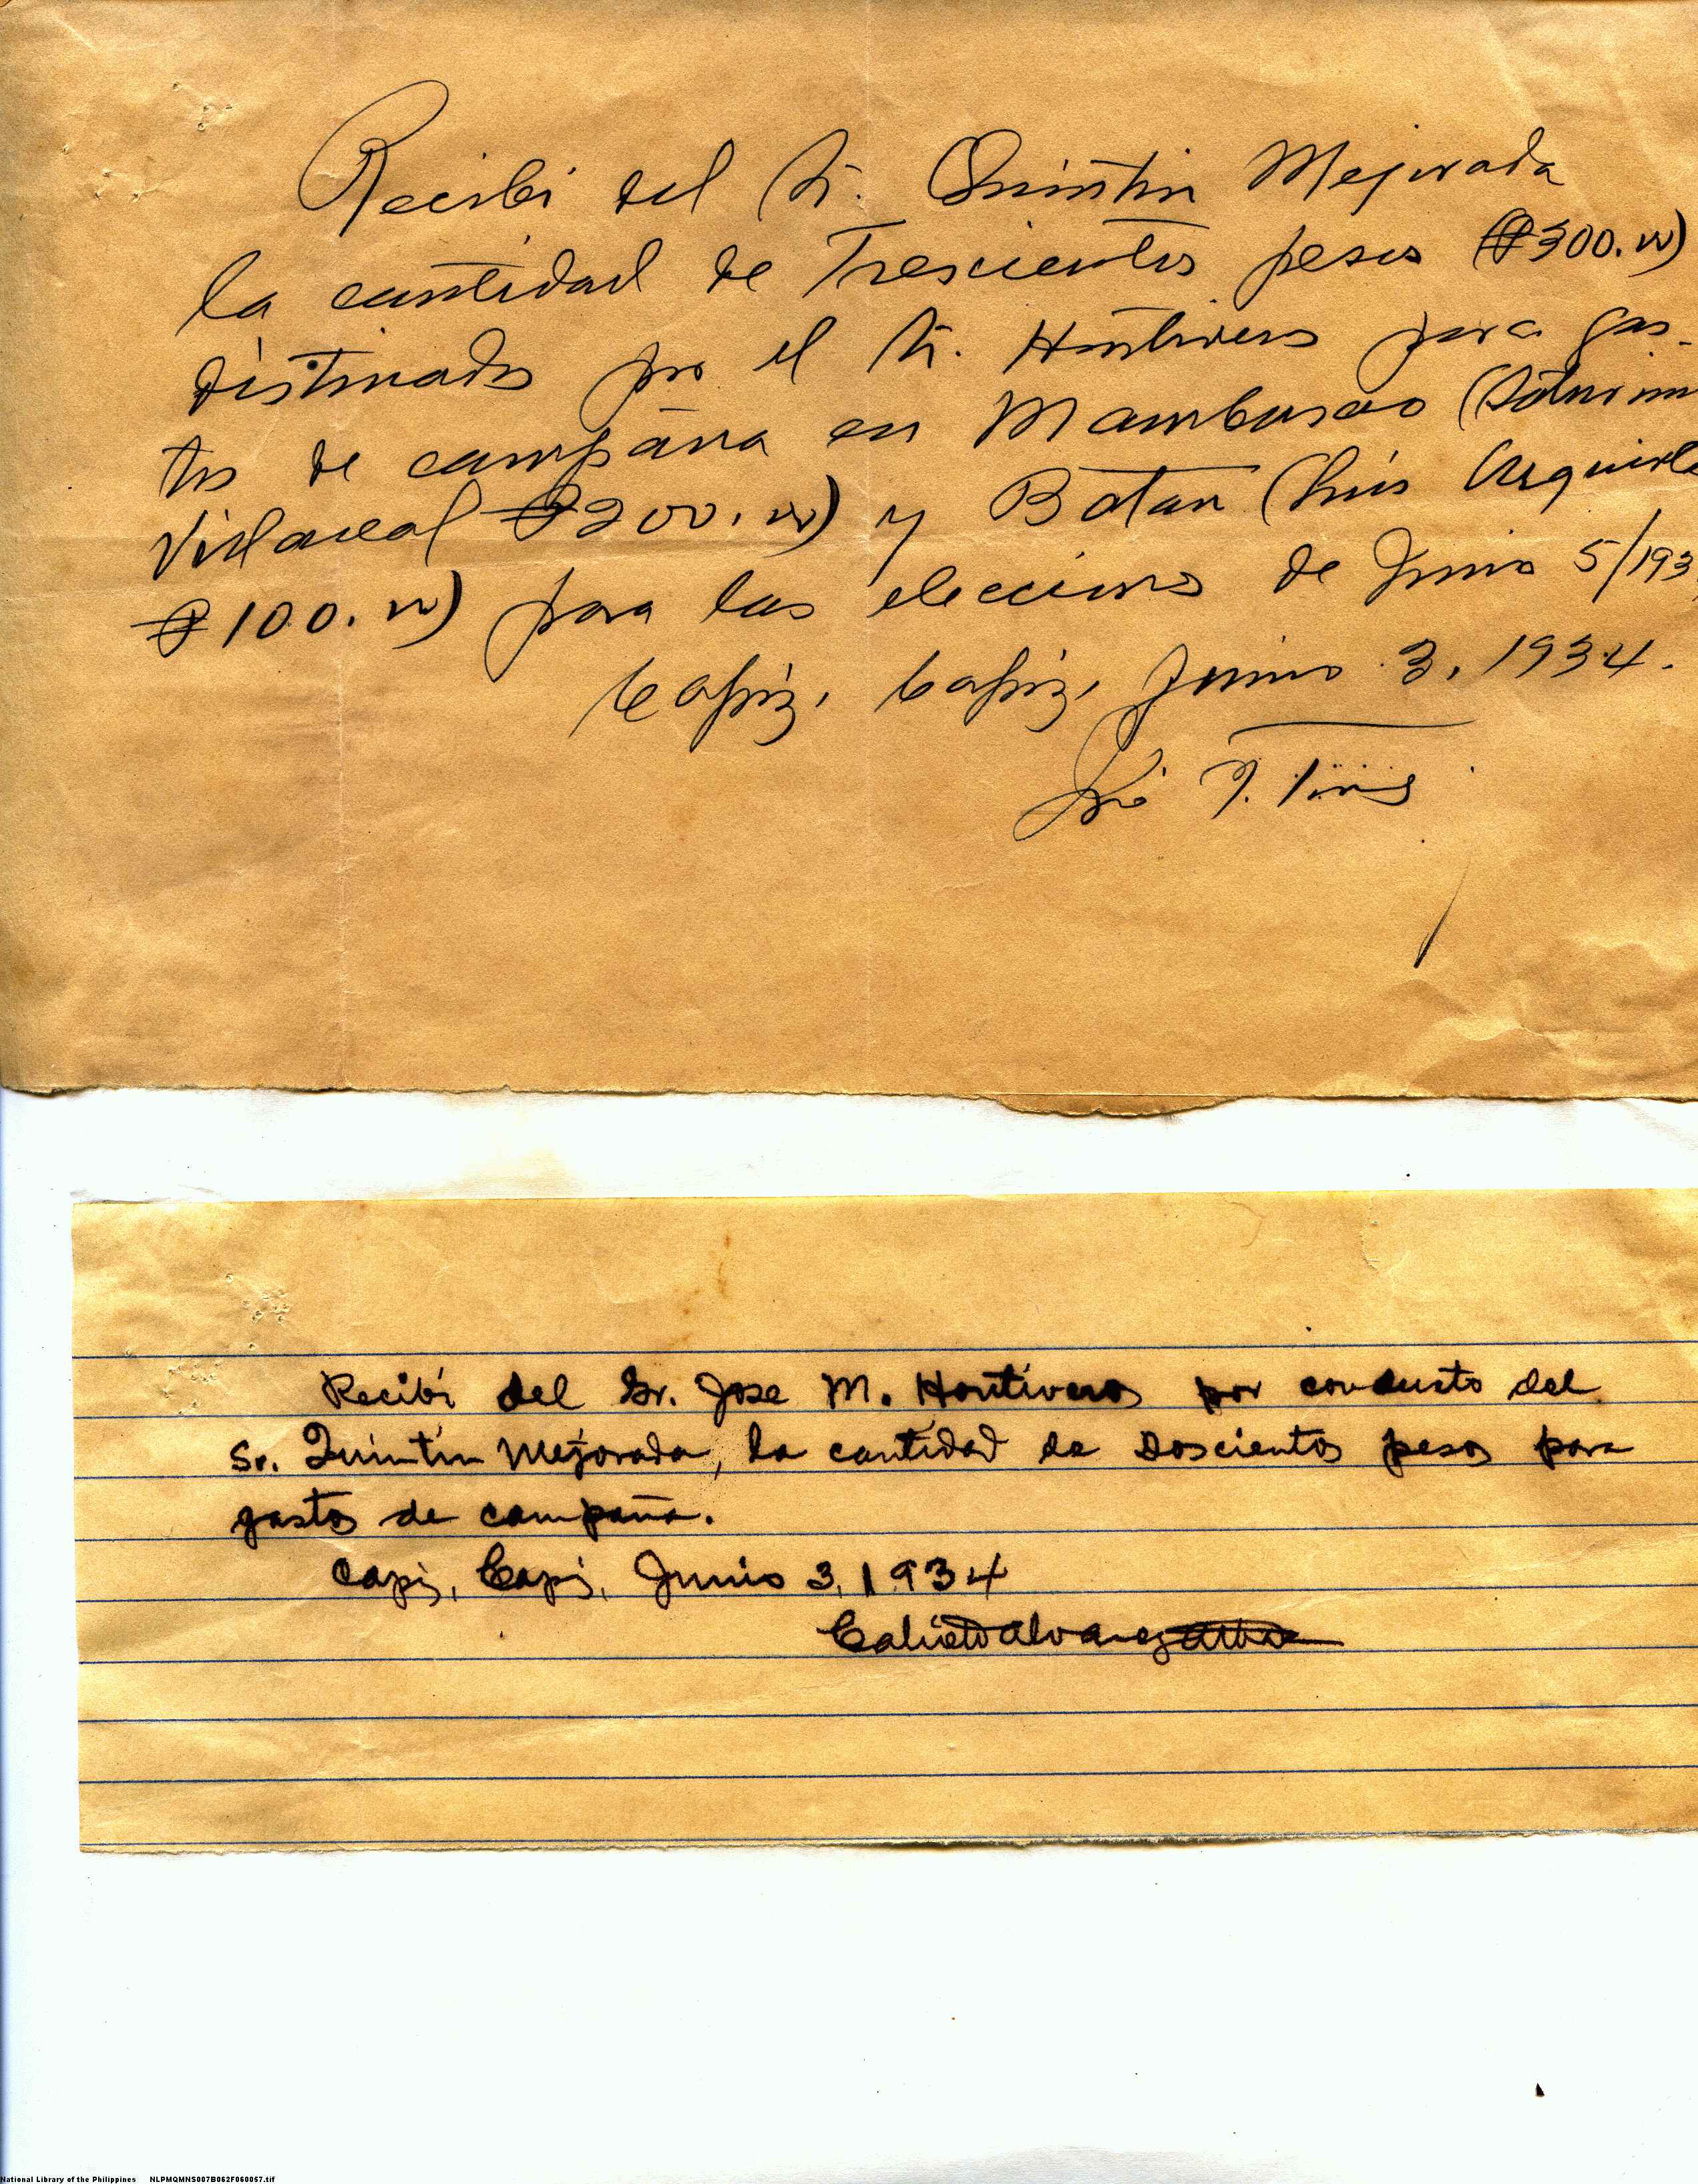 Recibí del Sr. Quintin Mejorada
la cantidad de Trescientos pesos (₱300.00)
destinados por el Sr. Hontiveros para gas-
tos de campaña en Mambusao
Villareal ₱200.00) y Batan (Luis
₱100.00) para las elecciones de Junio 5/193
Capiz, Capiz, Junio 3, 1934.
Recibí del Sr. Jose M. Hontiveros por conducto del
Sr. Quintín Mejorada, la cantidad de Doscientos pesos para
gastos de campaña.
Capiz, Capiz, Junio 3, 1934
Calixto Alvarez
National Library of the Philippines NLPMQMNS007B062F060057.tif